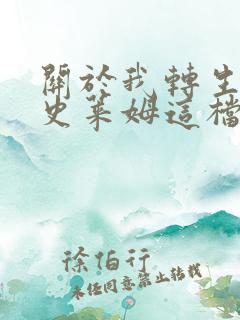 關於我轉生
史萊姆這檔
徐伯行
未经同意禁止转载